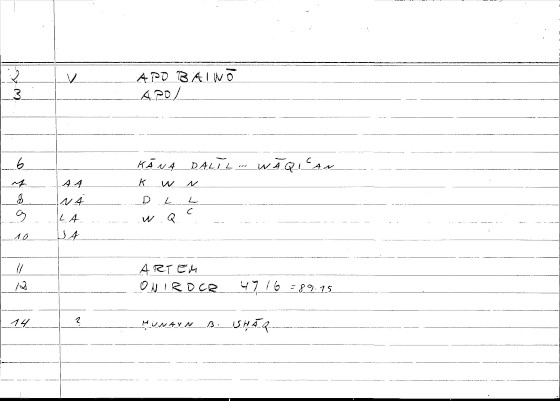 2 V APO BAINŌ
3 APO/
6 KĀNA DALĪL... WĀQIᶜAN
7 AA K W N
8 NA D L L
9 LA W Q ᶜ
10 SA
11 ARTEM
12 ONIROCR 47,6 = 89.15
14 ? ḤUNAYN B. ISḤĀQ